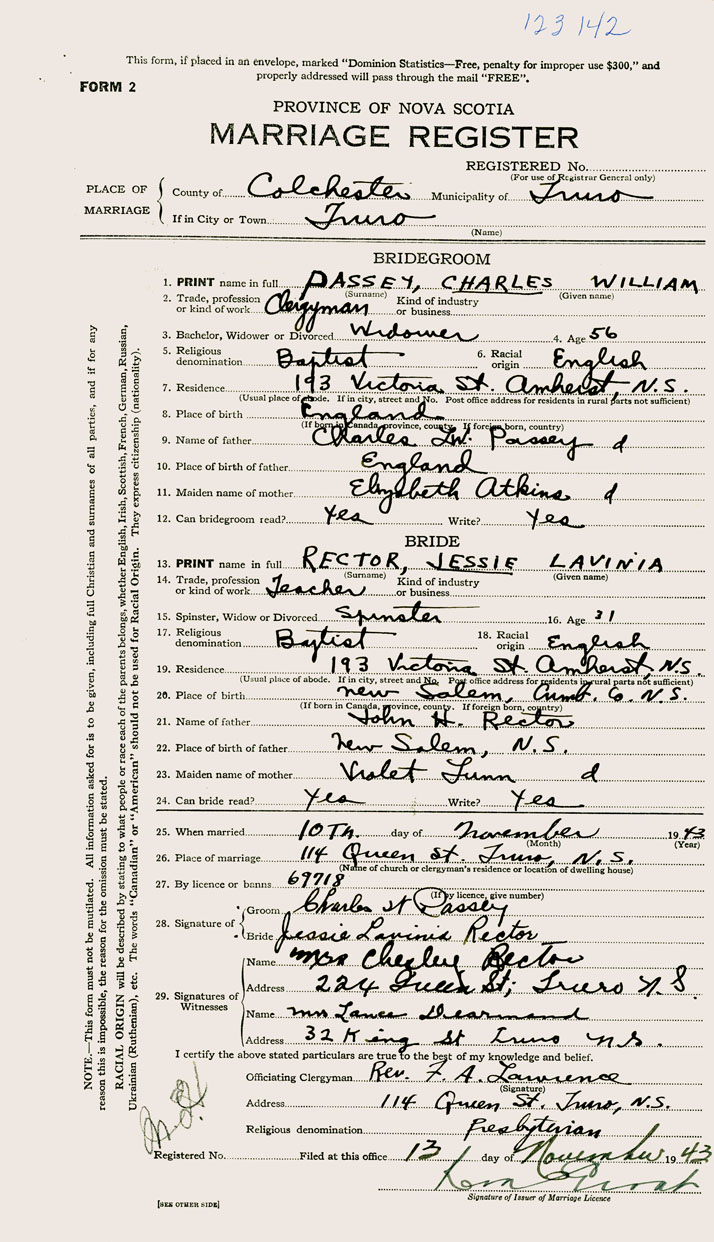 123142
This form, if placed in an envelope, marked "Dominion Statistics—Free, penalty for improper use $300," and
properly addressed will pass through the mail "FREE".
FORM 2
PROVINCE OF NOVA SCOTIA
MARRIAGE REGISTER
REGISTERED No.
(For use of Registrar General only)
PLACE OF MARRIAGE
County of Colchester Municipality of Truro
If in City or Town Truro
(Name)
BRIDEGROOM
1. PRINT name in full PASSEY, CHARLES WILLIAM
(Surname) (Given name)
2. Trade, profession or kind of work Clergyman Kind of industry or business
3. Bachelor, Widower or Divorced Widower 4. Age 56
5. Religious denomination Baptist 6. Racial origin English
7. Residence 193 Victoria St. Amherst, N.S.
(Usual place of abode. If in city, street and No. Post office address for residents in rural parts not sufficient)
8. Place of birth England
(If born in Canada, province, county. If foreign born, country)
9. Name of father Charles W. Passey d
10. Place of birth of father England
11. Maiden name of mother Elizabeth Atkins d
12. Can bridegroom read? Yes Write? Yes
BRIDE
13. PRINT name in full RECTOR, JESSIE LAVINIA
(Surname) (Given name)
14. Trade, profession or kind of work Teacher Kind of industry or business
15. Spinster, Widow or Divorced Spinster 16. Age 31
17. Religious denomination Baptist 18. Racial origin English
19. Residence 193 Victoria St. Amherst, N.S.
(Usual place of abode. If in city, street and No. Post office address for residents in rural parts not sufficient)
20. Place of birth New Salem, Cumb. Co. N.S.
(If born in Canada, province, county. If foreign born, country)
21. Name of father John H. Rector
22. Place of birth of father New Salem, N.S.
23. Maiden name of mother Violet Lunn d
24. Can bride read? Yes Write? Yes
25. When married 10Th. day of November 1943
(Month) (Year)
26. Place of marriage 114 Queen St. Truro, N.S.
(Name of church or clergyman's residence or location of dwelling house)
27. By licence or banns 69718
(If by licence, give number)
28. Signature of
Groom Charles W Passey
Bride Jessie Lavinia Rector
29. Signatures of Witnesses
Name Mrs Chesley Rector
Address 224 Queen St; Truro N.S.
Name Mrs Lance Dearmand
Address 32 King St Truro N.S.
I certify the above stated particulars are true to the best of my knowledge and belief.
Officiating Clergyman Rev. F. A. Lawrence
(Signature)
Address 114 Queen St. Truro, N.S.
Religious denomination Presbyterian
Registered No. Filed at this office 13 day of November 1943
Signature of Issuer of Marriage Licence
[SEE OTHER SIDE]
NOTE.—This form must not be mutilated. All information asked for is to be given, including full Christian and surnames of all parties, and if for any
reason this is impossible, the reason for the omission must be stated.
RACIAL ORIGIN will be described by stating to what people or race each of the parents belongs, whether English, Irish, Scottish, French, German, Russian,
Ukrainian (Ruthenian), etc. The words "Canadian" or "American" should not be used for Racial Origin. They express citizenship (nationality).